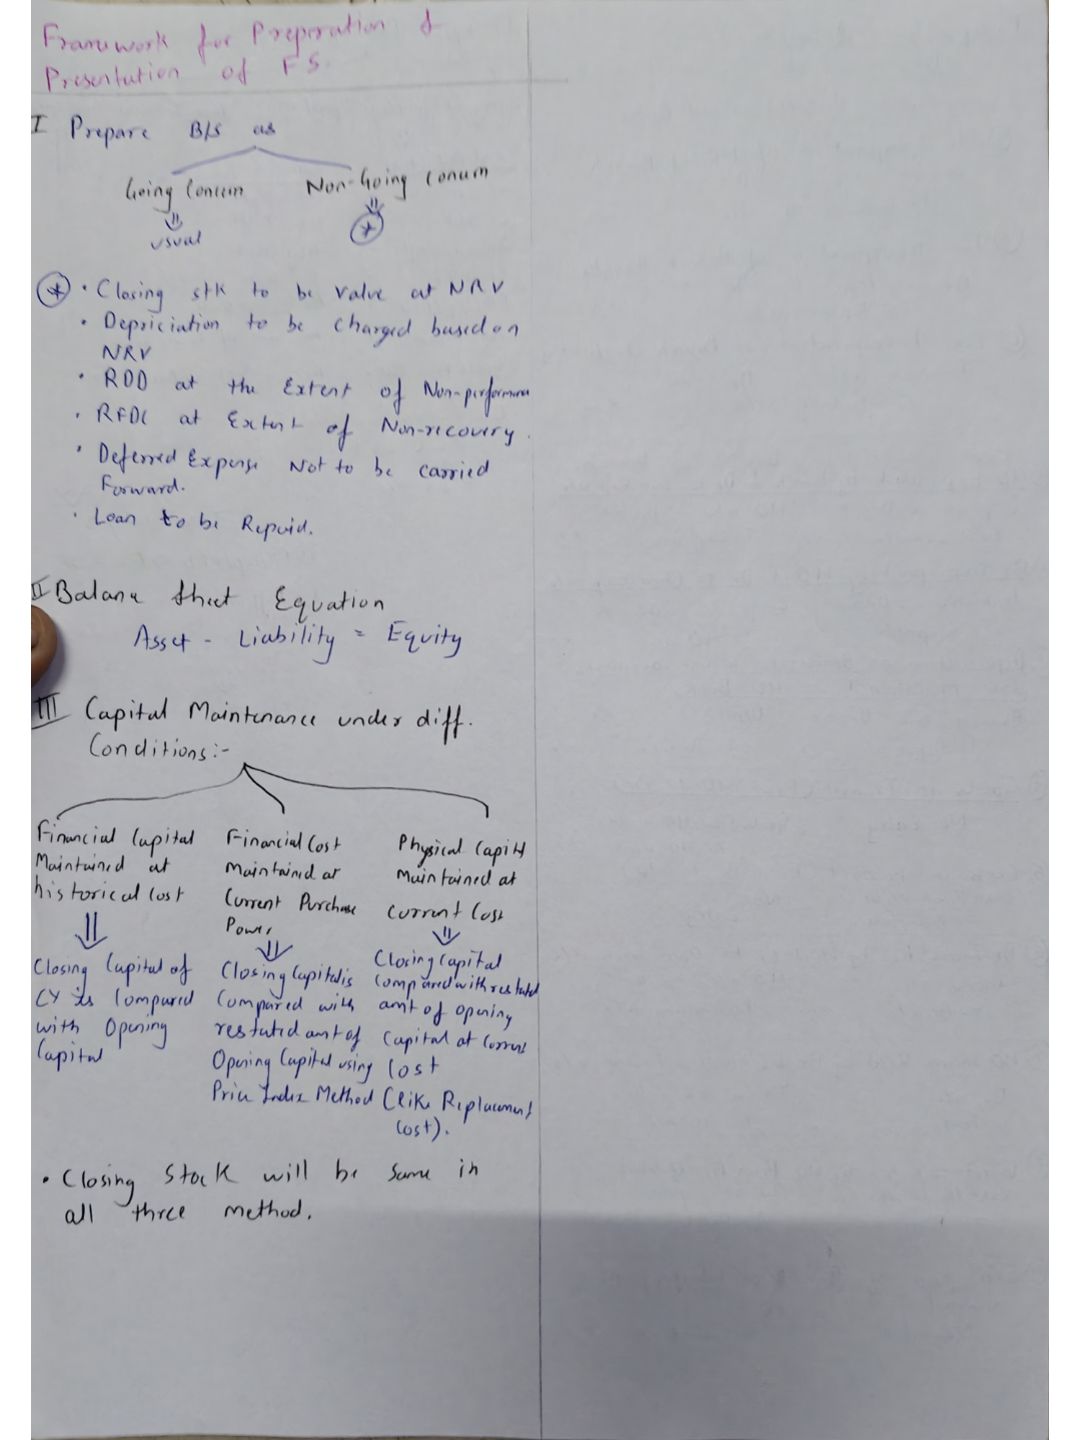 Framework for Preparation &
Presentation of FS.
I Prepare B/S as
Going Concern Non-Going Concern
usual
* • Closing stk to be value at NRV
• Depriciation to be charged based on
NRV
• RDD at the Extent of Non-performance
• RFDC at Extent of Non-recovery.
• Deferred Expense Not to be carried
Forward.
• Loan to be Repaid.
II Balance Sheet Equation
Asset - Liability = Equity
III Capital Maintenance under diff.
Conditions:-
Financial Capital
Maintained at
historical Cost
Closing Capital of
CY is Compared
with Opening
Capital
Financial Cost
Maintained at
Current Purchase
Power
Closing Capital is
Compared with
restated amt of
Opening Capital using
Price Index Method
Physical Capital
Maintained at
current Cost
Closing Capital
Compared with restated
amt of opening
Capital at Current
Cost
(like Replacement
Cost).
• Closing Stock will be Same in
all three method.